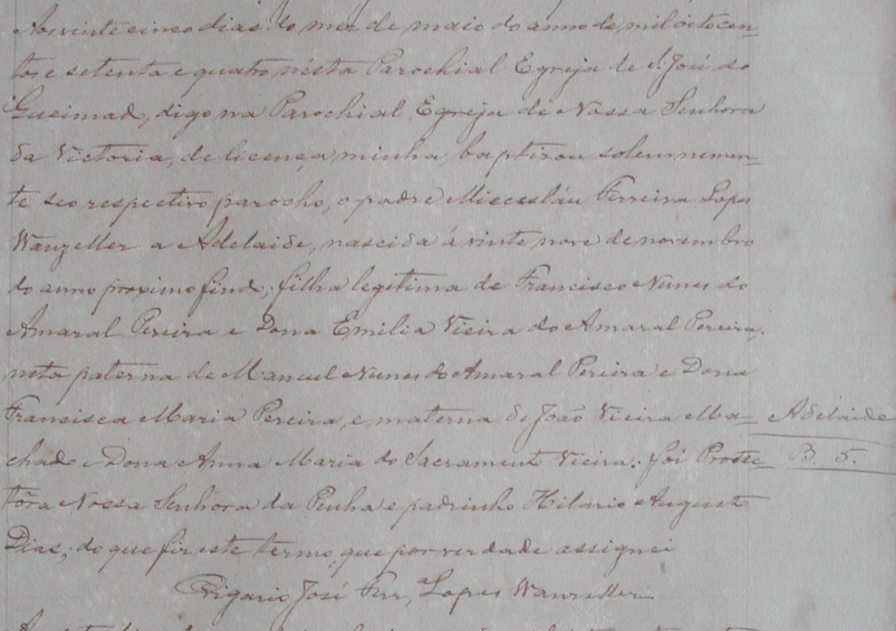 Aos vinte cinco dias do mez de maio do anno de mil oitocen-
tos e setenta e quatro nésta Parochial Egreja de S. José do
Queimad, digo na Parochial Egreja de Nossa Senhora
da Victoria, de licença minha, baptizou solemnemen-
te seo respectivo parocho, o padre Miecesláu Ferreira Lopes
Wanzeller a Adelaide, nascida á vinte nove de novembro
do anno proximo find; filha legitima de Francisco Nunes do
Amaral Pereira e Dona Emilia Vieira do Amaral Pereira;
neta paterna de Manuel Nunes do Amaral Pereira e Dona
Francisca Maria Pereira, e materna de João Vieira Ma-
Adelaide
chado e Dona Anna Maria do Sacramento Vieira; foi Protec-
B. 5.
tôra Nossa Senhora da Penha e padrinho Hilario Augusto
Dias; do que fiz este termo, que por verdade assignei
Vigario José Ferr.ª Lopes Wanzeller